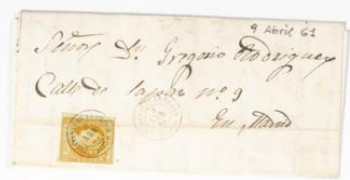 9 Abril 61
Señor Dn. Gregorio Rodriguez
Calle de no. 9
En Madrid